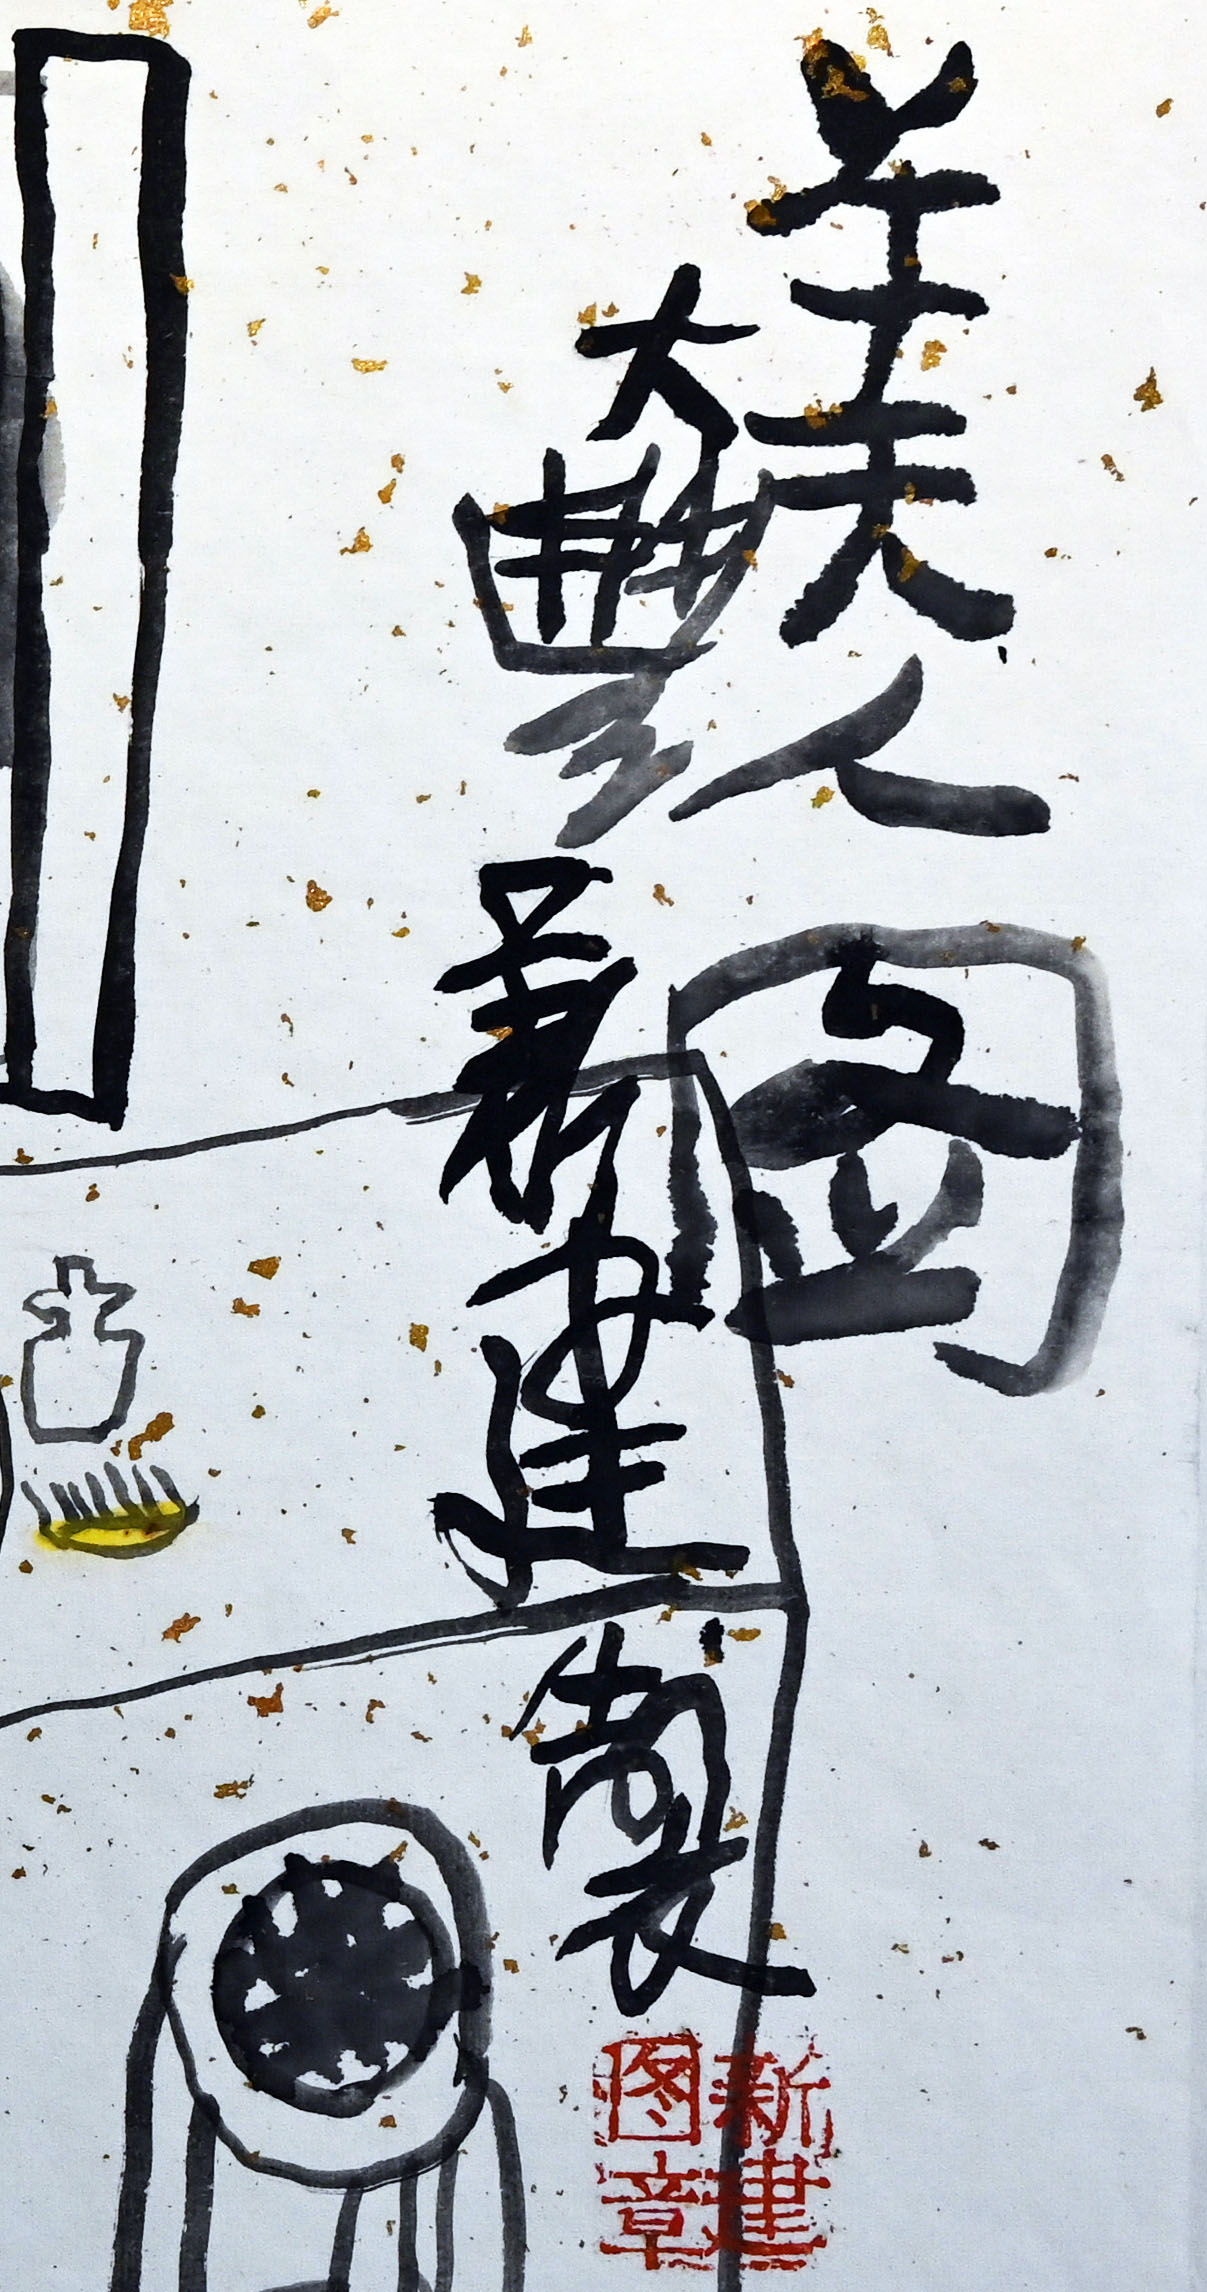 美人图
大豐新建製
新建
图章